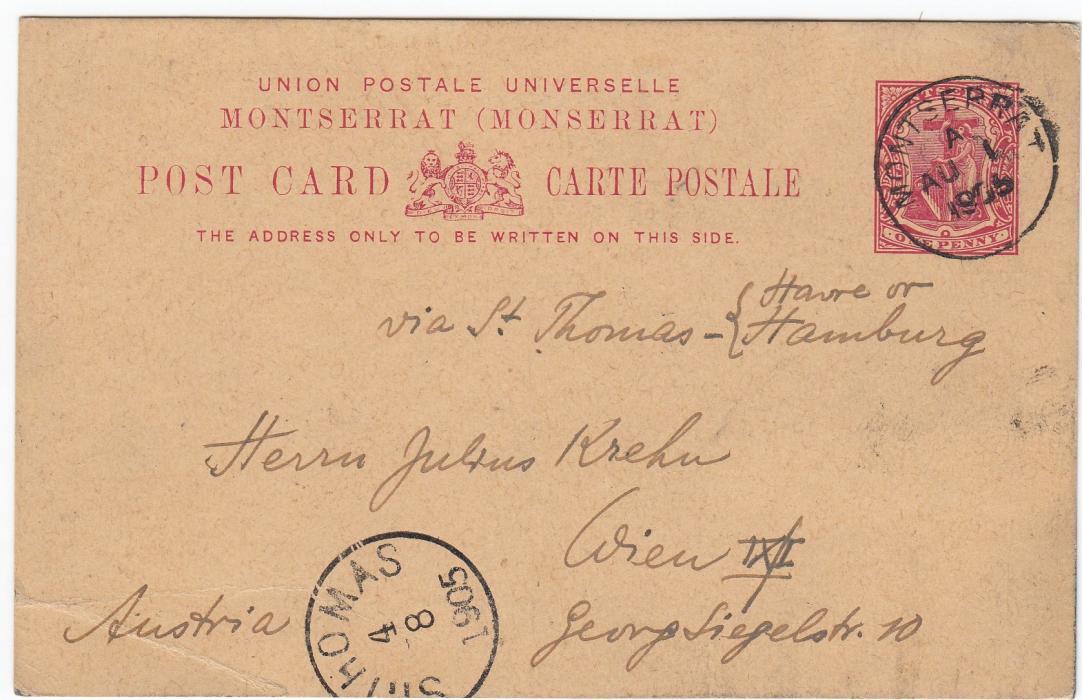 UNION POSTALE UNIVERSELLE
MONTSERRAT (MONSERRAT)
POST CARD CARTE POSTALE
THE ADDRESS ONLY TO BE WRITTEN ON THIS SIDE.
MONTSERRAT
A
AU 1
ONE PENNY
via St. Thomas - { Havre or
Hamburg
Herrn Julius Krehn
Wien
Austria
Georg Siegelstr. 10
THOMAS
4
8
1905